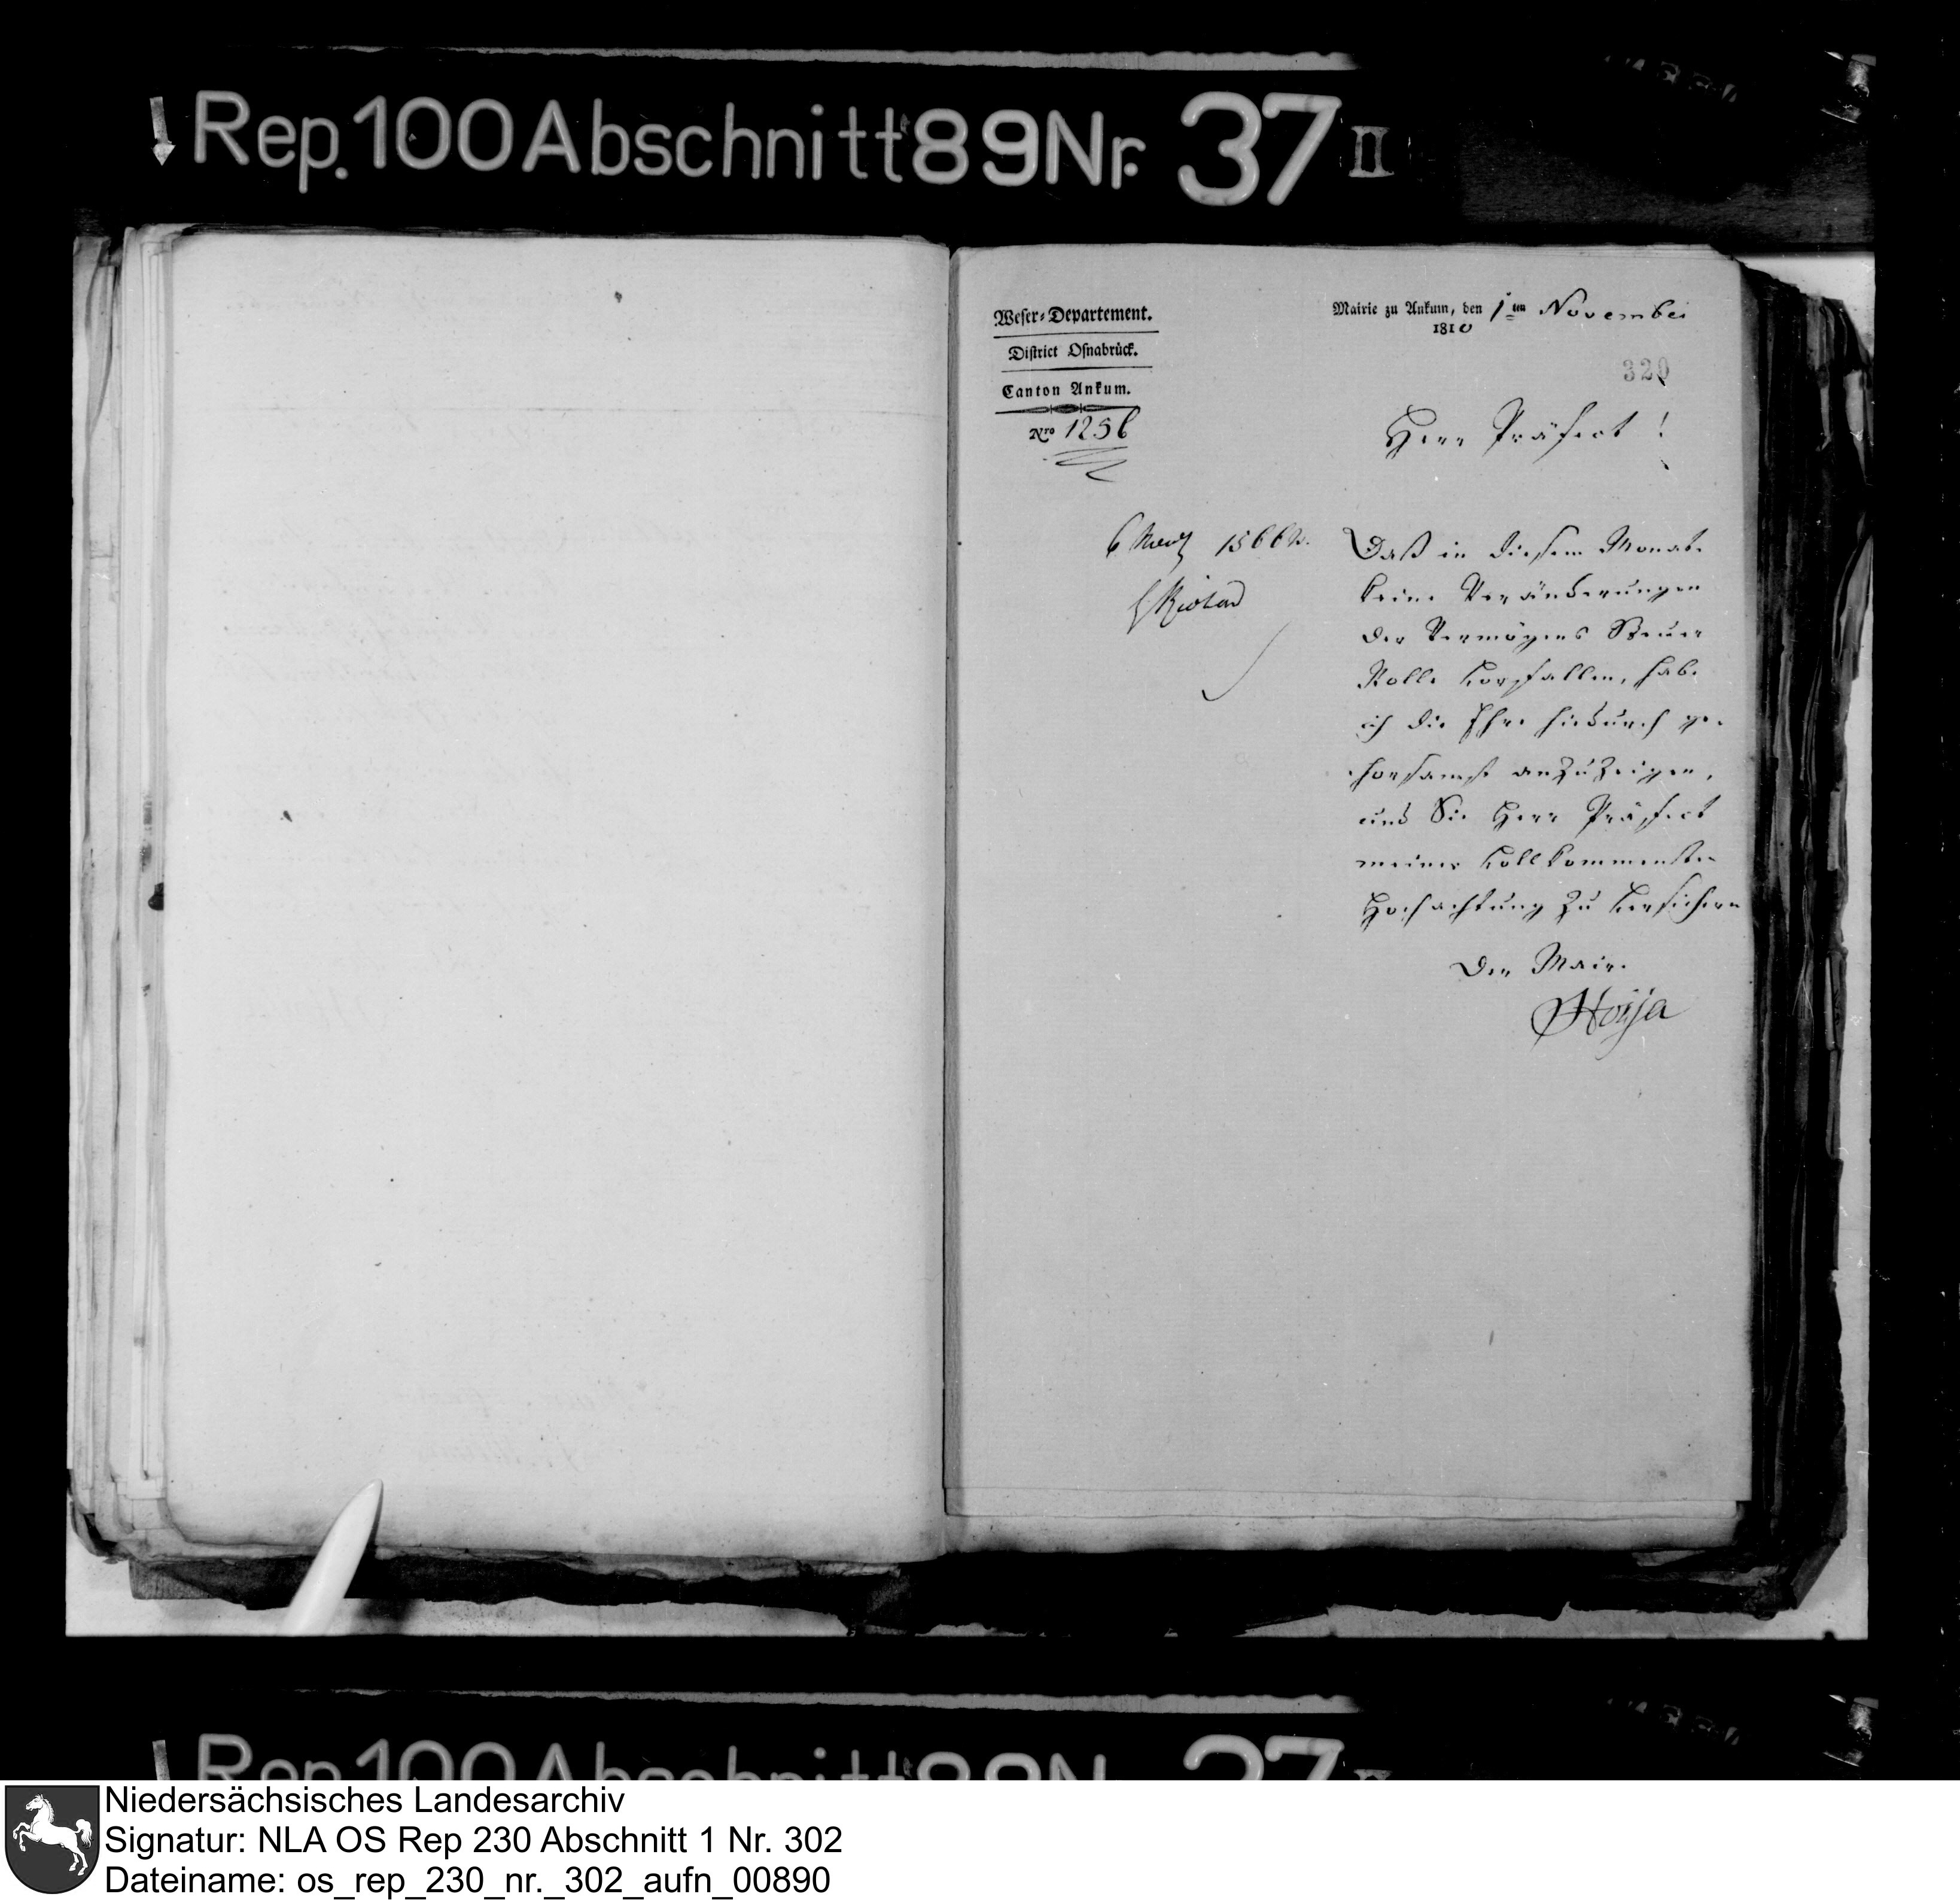 Rep. 100 Abschnitt 89 Nr. 37 II
Weser-Departement.
District Osnabrück.
Canton Ankum.
Nro 1256
Mairie zu Ankum, den 1ten November
1810
320
Herr Präfect!
6 15662.
Daß in diesem Monat
keine Veränderungen
der Vermögens Steuer
Rolle vorgefallen, habe
ich die Ehre hiedurch ge-
horsamst anzuzeigen,
und Sie Herr Präfect
meiner vollkommensten
Hochachtung zu versichern
Der Maire
Hoija
Rep. 100 Abschnitt 89 N 37
Niedersächsisches Landesarchiv
Signatur: NLA OS Rep 230 Abschnitt 1 Nr. 302
Dateiname: os_rep_230_nr._302_aufn_00890